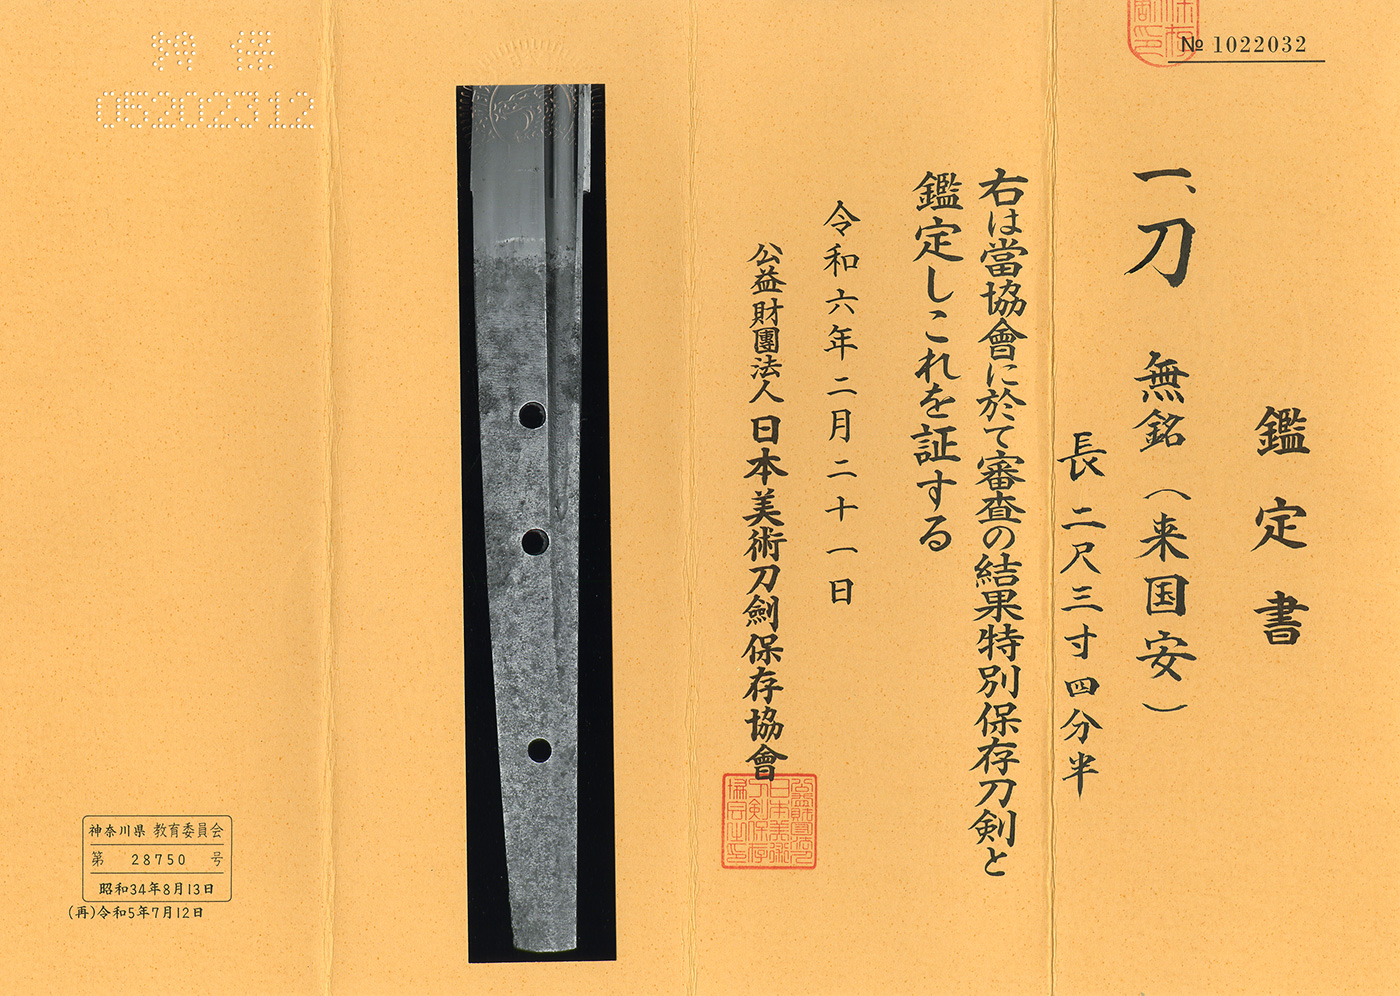 № 1022032
鑑定書
一、刀 無銘（来国安）
長二尺三寸四分半
右は當協會に於て審査の結果特別保存刀剣と
鑑定しこれを証する
令和六年二月二十一日
公益財團法人日本美術刀劍保存協會
05202312
神奈川県 教育委員会
第 28750 号
昭和34年8月13日
(再)令和5年7月12日